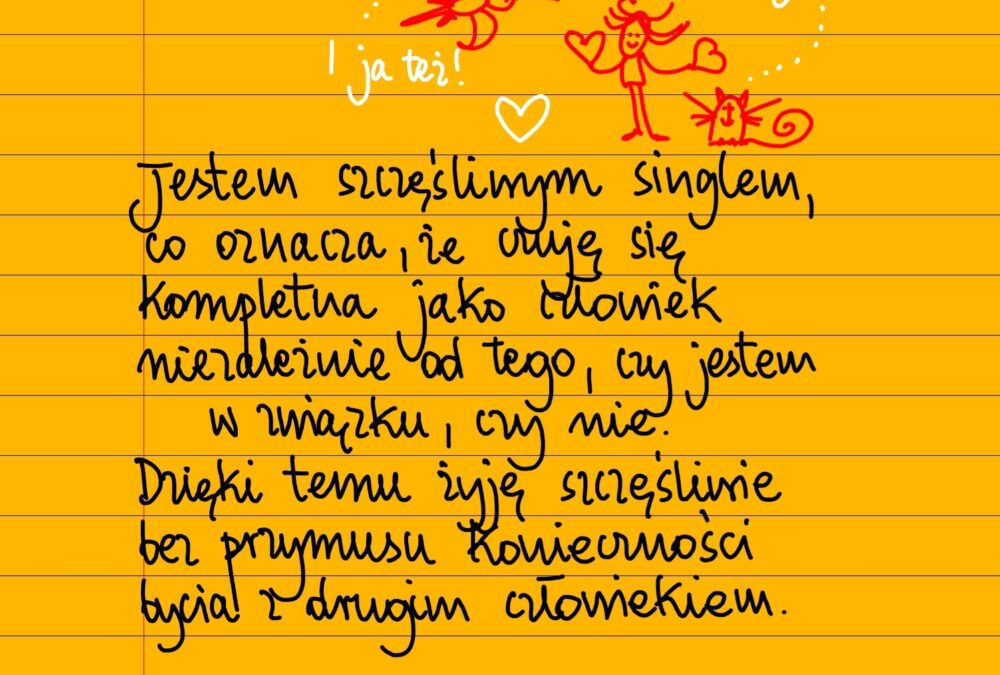 I ja też!
Jestem szczęśliwym singlem,
co oznacza, że czuję się
kompletna jako człowiek
niezależnie od tego, czy jestem
w związku, czy nie.
Dzięki temu żyję szczęśliwie
bez przymusu konieczności
bycia z drugim człowiekiem.